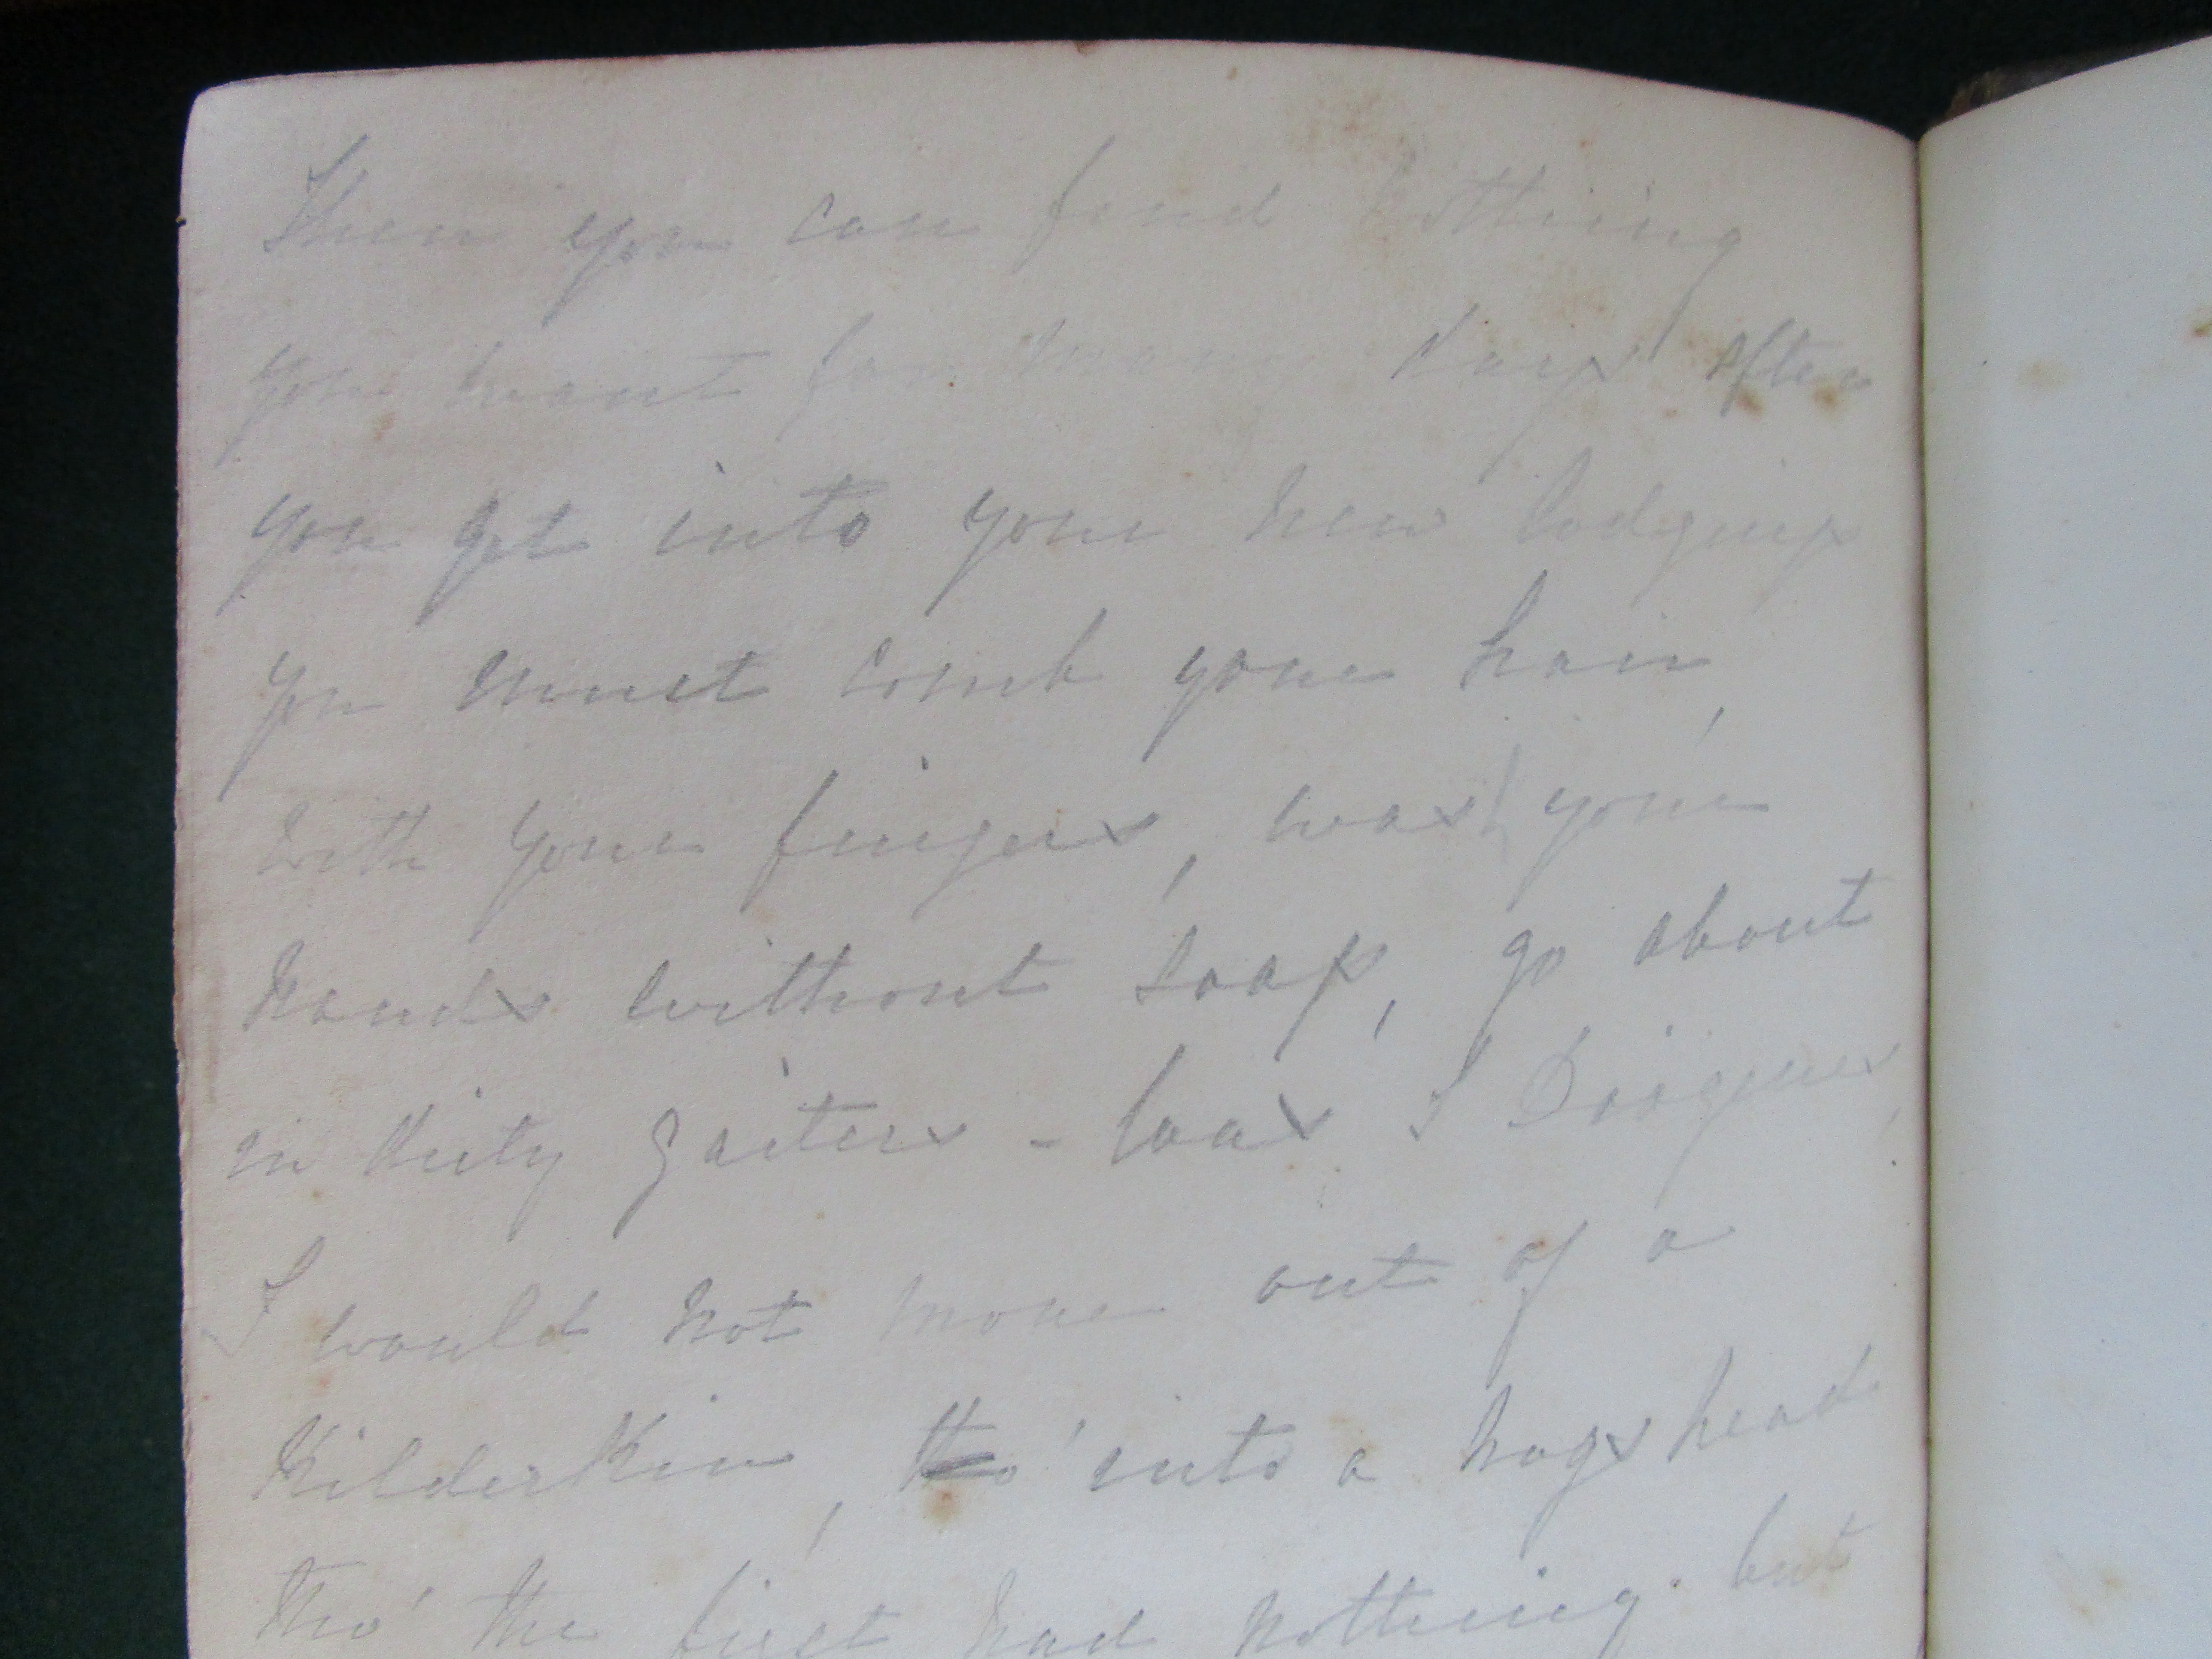 Then you can find nothing
you want for many days after
you get into your new lodging
you must comb your hair,
with your fingers, wash your
hands without soap, go about
in dirty gaiters - was I Diogenes,
I would not move out of a
Kilderkin, tho' into a hogshead
tho' the first had nothing but